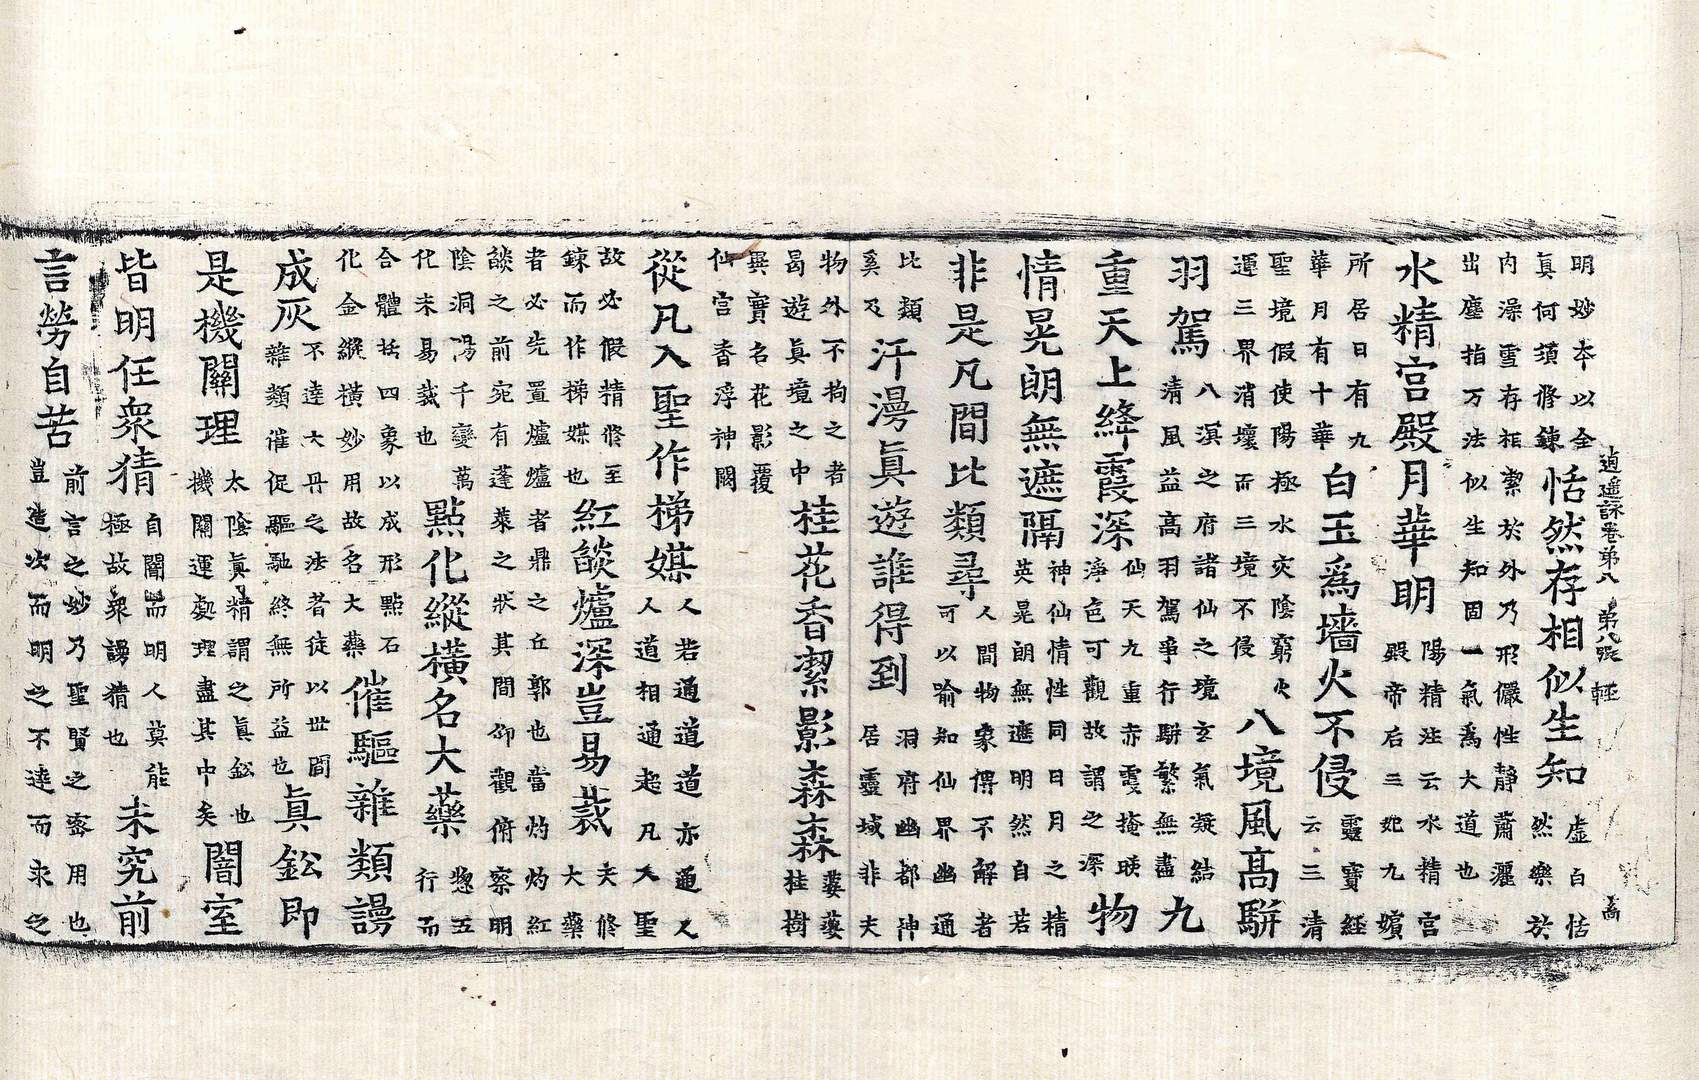 逍遥詠卷第八 第八張 輕
明妙本以全真何須修鍊恬然存相似生知虛白恬然樂於
内澡雪存相潔於外乃形儼性靜蕭灑出塵指万法似生知固一氣爲大道也
水精宫殿月華明陽精注云水精宫殿帝后三妃九嬪
所居日有九華月有十華白玉爲墻火不侵靈寶經云三清
聖境假使陽極水灾陰窮火運三界消壞而三境不侵八境風高駢
羽駕八溟之府諸仙之境玄氣凝結清風益高羽駕爭行駢繁無盡九
重天上絳霞深仙天九重赤霞掩暎淨色可觀故謂之深物
情晃朗無遮隔神仙情性同日月之精英晃朗無遮明然自若
非是凡間比類尋人間物象不解者可以喻知仙界幽通
比類奚及汗漫真遊誰得到洞府幽都神居靈域非夫
物外不拘之者曷遊真境之中桂花香潔影森森桂樹
異實名花影覆仙宫香浮神闕
從凡入聖作梯媒人若通道道亦通人人道相通起凡入聖
故必假精修至鍊而作梯媒也紅燄爐深豈易裁夫修大藥
者必先置爐爐者鼎之丘郭也當灼灼紅燄之前宛有蓬萊之狀其間仰觀俯察明
陰洞陽千變萬化未易裁也點化縱橫名大藥惣五行而
合體括四象以成形點石化金縱橫妙用故名大藥催驅雜類謾
成灰不達大丹之法者徒以世間雜類催促驅馳終無所益也真鈆即
是機關理太陰真精謂之真鈆也機關運處理盡其中矣闇室
皆明任衆猜自闇而明人莫能極故衆謗猜也未究前
言勞自苦前言之妙乃聖賢之密用也豈造次而明之不達而求之